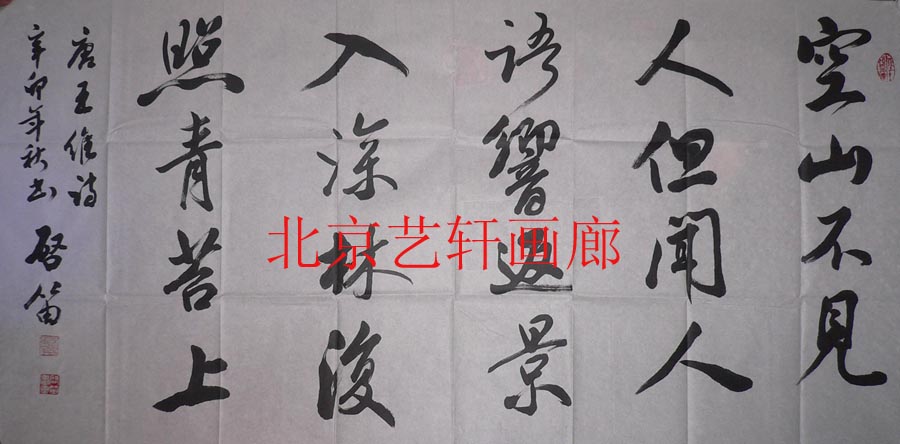 空山不見
人但聞人
語響返景
入深林復
照青苔上
唐王維詩
辛卯年秋书 啓笛
北京艺轩画廊